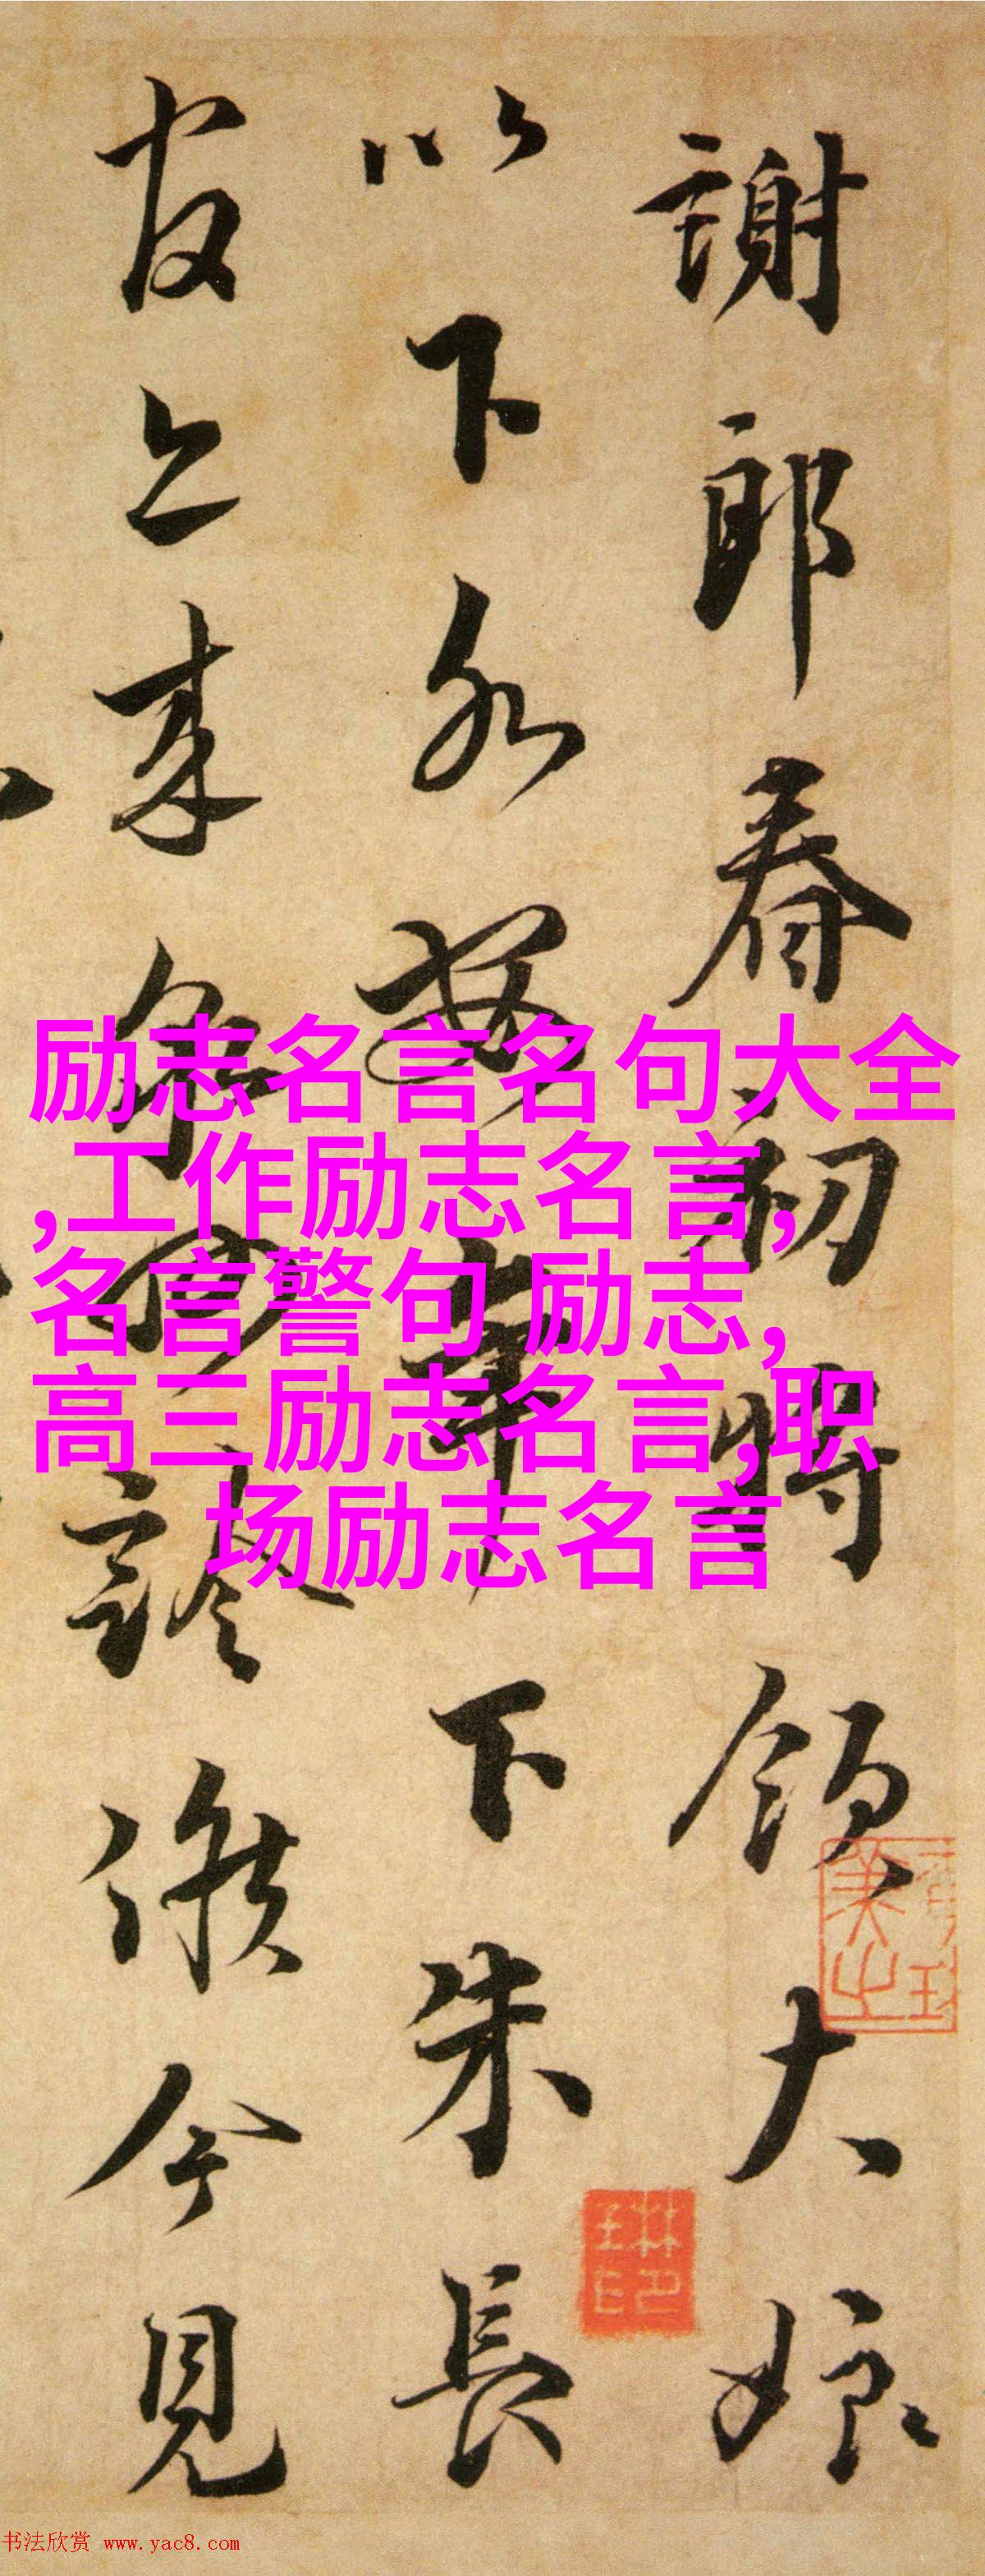 謝郎春初將領大娘
以下永 華下朱長
官上來 診候今見
励志名言名句大全
,工作励志名言,
名言警句 励志,
高三励志名言,职
场励志名言
书法欣赏 www.yac8.com